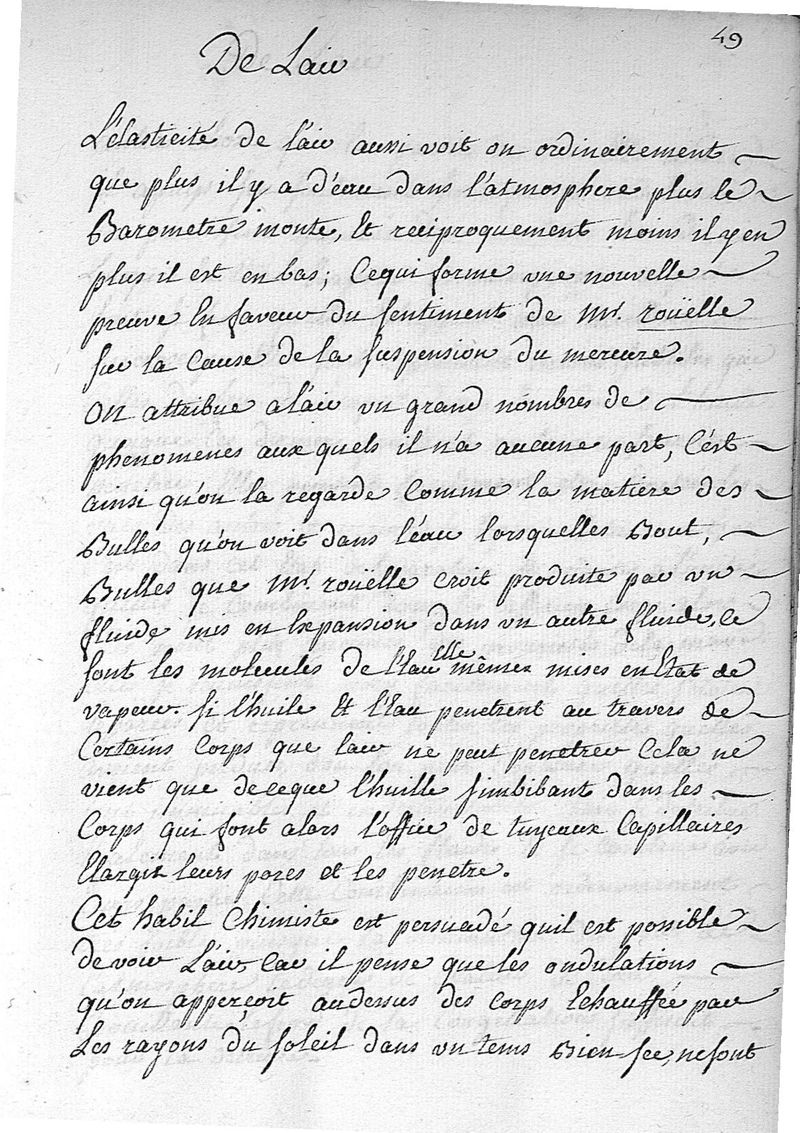 49
De Lair
L'élasticité de l'air aussi voit on ordinairement
que plus il y a d'eau dans l'atmosphere plus le
Barometre monte, Et reciproquement moins il y en
plus il est en bas; Cequi forme une nouvelle
preuve En faveur du sentiment de Mr. rouëlle
sur la Cause de la suspension du mercure.
On attribue a l'air un grand nombres de
phenomenes aux quels il n'a aucune part, C'est
ainsi qu'on la regarde Comme la matiere des
Bulles qu'on voit dans l'eau lorsquelles Bout,
Bulles que Mr. rouëlle croit produite par un
fluide mis en Expansion dans un autre fluide, Ce
sont les molecules de l'Eau elle memes mises en Etat de
vapeur. si l'huile Et l'Eau penetrent au travers de
Certains Corps que lair ne peut penetrer Cela ne
vient que de ceque l'huille s'imbibant dans les
Corps qui font alors l'office de tuyeaux Capillaires
Elargit leurs pores et les penetre.
Cet habil Chimiste est persuadé quil est possible
de voir L'air, Car il pense que les ondulations
qu'on apperçoit audessus des corps Echauffée par
Les rayons du soleil dans un tems Bien sec, ne sont